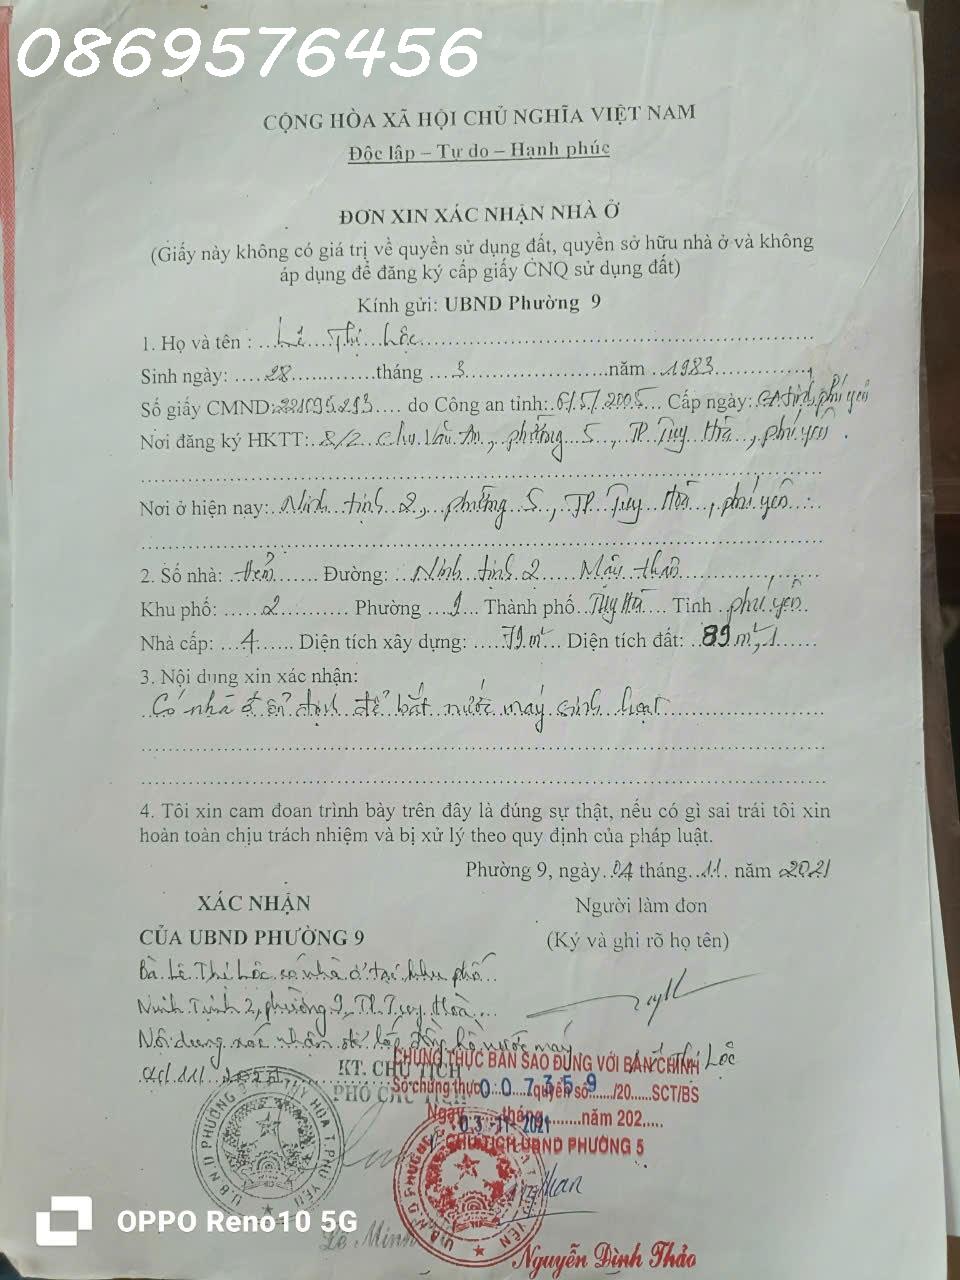 0869576456
CỘNG HÒA XÃ HỘI CHỦ NGHĨA VIỆT NAM
Độc lập – Tự do – Hạnh phúc
ĐƠN XIN XÁC NHẬN NHÀ Ở
(Giấy này không có giá trị về quyền sử dụng đất, quyền sở hữu nhà ở và không
áp dụng để đăng ký cấp giấy CNQ sử dụng đất)
Kính gửi: UBND Phường 9
1. Họ và tên : Lê Thị Lộc
Sinh ngày: 28 tháng 3 năm 1983
Số giấy CMND: 221095293 do Công an tỉnh: 6/5/2005 Cấp ngày: CA tỉnh phú yên
Nơi đăng ký HKTT: 8/2 Chu Văn An, phường 5, TP Tuy Hoà, phú yên.
Nơi ở hiện nay: Ninh tịnh 2, phường 5, TP. Tuy Hoà, phú yên
2. Số nhà: Đường: Ninh tịnh 2
Khu phố: 2 Phường Thành phố Tuy Hoà Tỉnh phú yên
Nhà cấp: 4 Diện tích xây dựng: 79 m² Diện tích đất: 89 m²,1
3. Nội dung xin xác nhận:
Có nhà ở ổn định để bắt nước máy sinh hoạt
4. Tôi xin cam đoan trình bày trên đây là đúng sự thật, nếu có gì sai trái tôi xin
hoàn toàn chịu trách nhiệm và bị xử lý theo quy định của pháp luật.
Phường 9, ngày 04 tháng 11 năm 2021
XÁC NHẬN
CỦA UBND PHƯỜNG 9
Người làm đơn
(Ký và ghi rõ họ tên)
Bà Lê Thị Lộc có nhà ở tại khu phố
Ninh Tịnh 2, phường 9, TP. Tuy Hoà
Nội dung xác nhận để lắp đồng hồ nước máy
Thị Lộc
KT. CHỦ TỊCH
PHÓ CHỦ TỊCH
CHỨNG THỰC BẢN SAO ĐÚNG VỚI BẢN CHÍNH
Số chứng thực 007359 quyển số /20 SCT/BS
Ngày tháng năm 202
03-11-2021
CHỦ TỊCH UBND PHƯỜNG 5
Lê Minh
Nguyễn Đình Thảo
OPPO Reno10 5G